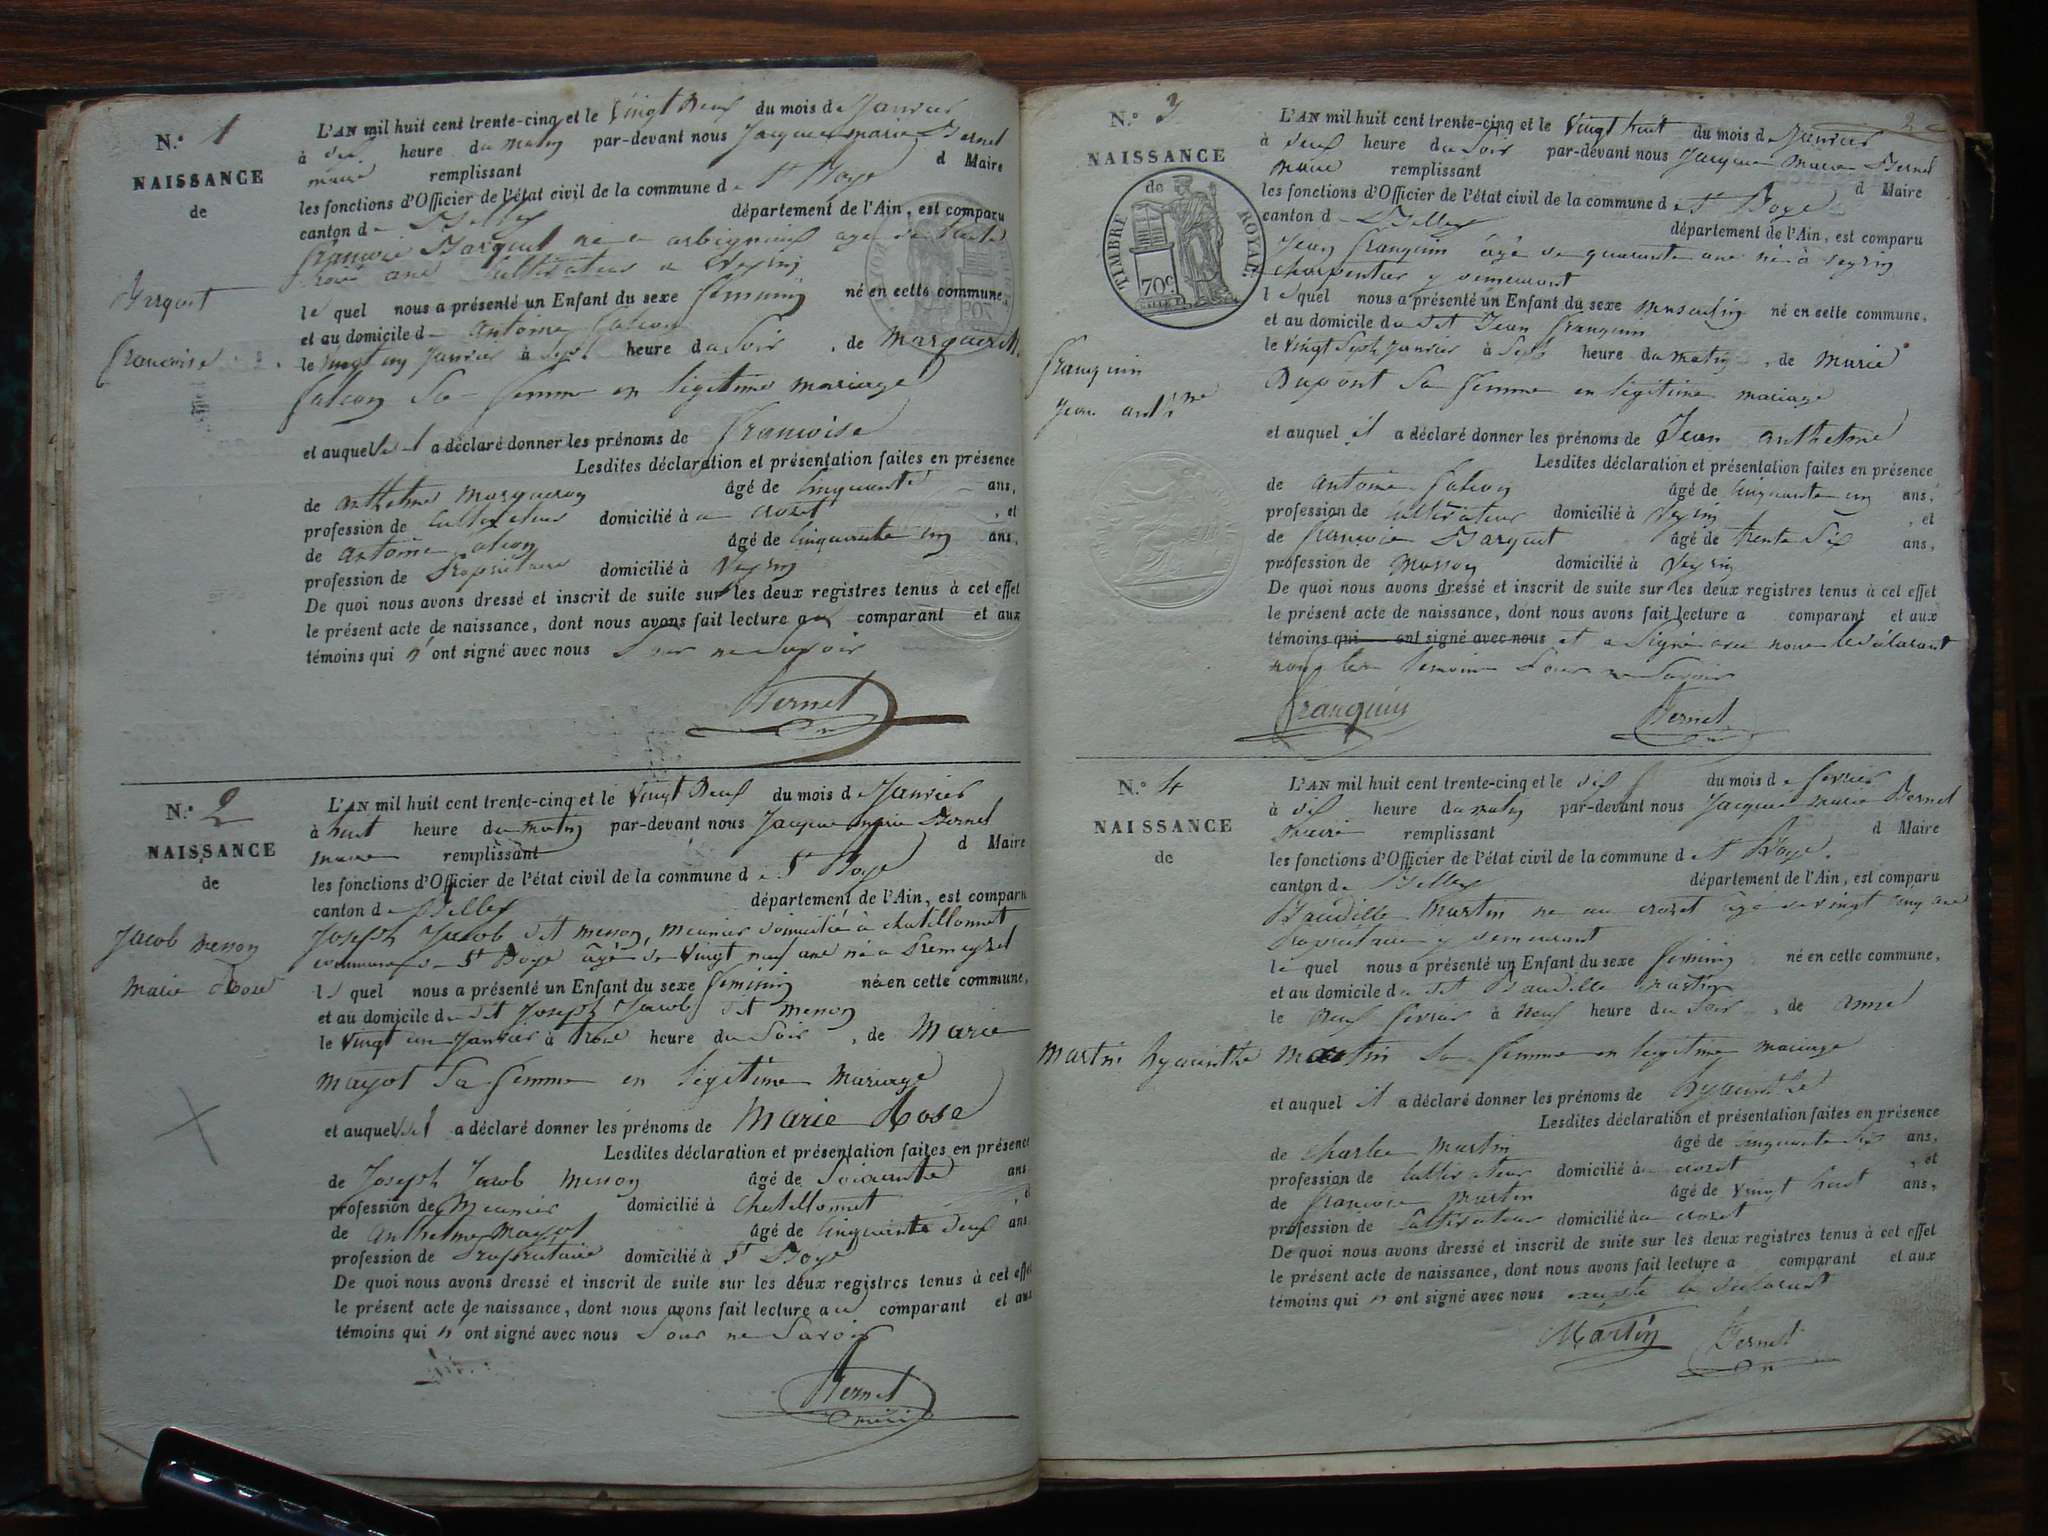 N.° 1
NAISSANCE
de
Barquet
Francoise
L'AN mil huit cent trente-cinq et le vingt deux du mois de Janvier
à dix heure du matin par-devant nous Jacque marie Bernet
maire remplissant d Maire
les fonctions d'Officier de l'état civil de la commune de St
canton de Belley département de l'Ain, est comparu
francois Barquet né a arbignieu age de trente
trois ans cultivateur a veyrin
le quel nous a présenté un Enfant du sexe feminin né en cette commune,
et au domicile d antoine falcon
le vingt un janvier à sept heure du Soir, de Marguerite
falcon Sa femme en légitime mariage
et auquel il a déclaré donner les prénoms de francoise
Lesdites déclaration et présentation faites en présence
de anthelme âgé de Cinquante ans,
profession de cultivateur domicilié à crozet, et
de antoine falcon âgé de Cinquante un ans,
profession de Propriétaire domicilié à Veyrin
De quoi nous avons dressé et inscrit de suite sur les deux registres tenus à cet effet
le présent acte de naissance, dont nous avons fait lecture au comparant et aux
témoins qui n'ont signé avec nous pour ne Savoir
Bernet
N.° 2
NAISSANCE
de
Jacob menon
Marie Rose
L'AN mil huit cent trente-cinq et le vingt Deux du mois d Janvier
à huit heure du matin par-devant nous Jacque marie Bernet
maire remplissant d Maire
les fonctions d'Officier de l'état civil de la commune de St
canton de Belley département de l'Ain, est comparu
Joseph Jacob dit menon, meunier domicilié à chatillonnet
commune de St âgé de vingt neuf ans né a Premeyzel
le quel nous a présenté un Enfant du sexe feminin né en cette commune,
et au domicile du dit Joseph Jacob dit menon
le vingt un Janvier à trois heure du Soir, de Marie
mayot Sa femme en légitime mariage
et auquel il a déclaré donner les prénoms de Marie Rose
Lesdites déclaration et présentation faites en présence
de Joseph Jacob menon âgé de Soixante ans
profession de Meunier domicilié à Chatillonnet, et
de Anthelme Mayot âgé de Cinquante deux ans
profession de Propriétaire domicilié à St
De quoi nous avons dressé et inscrit de suite sur les deux registres tenus à cet effet
le présent acte de naissance, dont nous avons fait lecture au comparant et aux
témoins qui n'ont signé avec nous pour ne Savoir
Bernet
2
N.° 3
NAISSANCE
de
TIMBRE ROYAL
70c.
franquin
Jean anthme
L'AN mil huit cent trente-cinq et le vingt huit du mois de Janvier
à deux heure du Soir par-devant nous Jacque marie Bernet
maire remplissant d Maire
les fonctions d'Officier de l'état civil de la commune de St
canton d Belley département de l'Ain, est comparu
Jean franquin âgé de quarante ans né à veyrin
charpentier y demeurant
le quel nous a présenté un Enfant du sexe masculin né en cette commune,
et au domicile du dit Jean franquin
le vingt Sept Janvier à Sept heure du matin, de Marie
Dupont Sa femme en légitime mariage
et auquel il a déclaré donner les prénoms de Jean anthelme
Lesdites déclaration et présentation faites en présence
de antoine falcon âgé de Cinquante un ans,
profession de cultivateur domicilié à Veyrin, et
de francois Barquet âgé de trente Six ans,
profession de Masson domicilié à Veyrin
De quoi nous avons dressé et inscrit de suite sur les deux registres tenus à cet effet
le présent acte de naissance, dont nous avons fait lecture a comparant et aux
témoins qui ont signé avec nous et a Signé avec nous le déclarant
non les temoins pour ne Savoir
franquin Bernet
N.° 4
NAISSANCE
de
Martin hyacinthe
L'AN mil huit cent trente-cinq et le dix du mois d fevrier
à dix heure du matin par-devant nous Jacque marie Bernet
maire remplissant d Maire
les fonctions d'Officier de l'état civil de la commune de St
canton de Belley département de l'Ain, est comparu
Baudille Martin né au crozet age de vingt cinq ans
Propriétaire y demeurant
le quel nous a présenté un Enfant du sexe feminin né en cette commune,
et au domicile du dit Baudille martin
le neuf fevrier à neuf heure du Soir, de anne
Martin Sa femme en légitime mariage
et auquel il a déclaré donner les prénoms de hyacinthe
Lesdites déclaration et présentation faites en présence
de Charle Martin âgé de cinquante Six ans,
profession de cultivateur domicilié au crozet, et
de francois Martin âgé de vingt huit ans,
profession de cultivateur domicilié au crozet
De quoi nous avons dressé et inscrit de suite sur les deux registres tenus à cet effet
le présent acte de naissance, dont nous avons fait lecture a comparant et aux
témoins qui n'ont signé avec nous excepté le déclarant
Martin Bernet